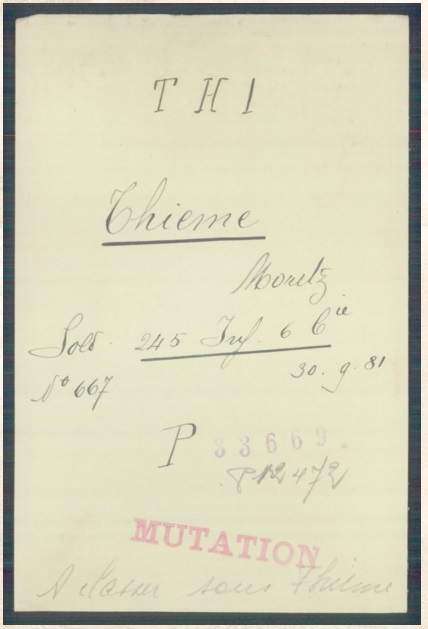 THI
Thieme
Moritz
Sold. 245 Inf. 6 Cie
30. 9. 81
No 667
P 33669.
P12472
MUTATION
A classer sous Thieme